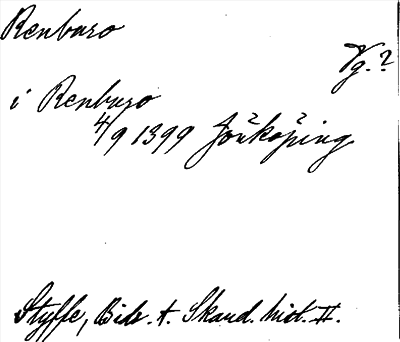 Renbaro
Vg.?
i Renburo
4/9 1399 Jönköping
Styffe, Bidr. t. Skand. hist. II.